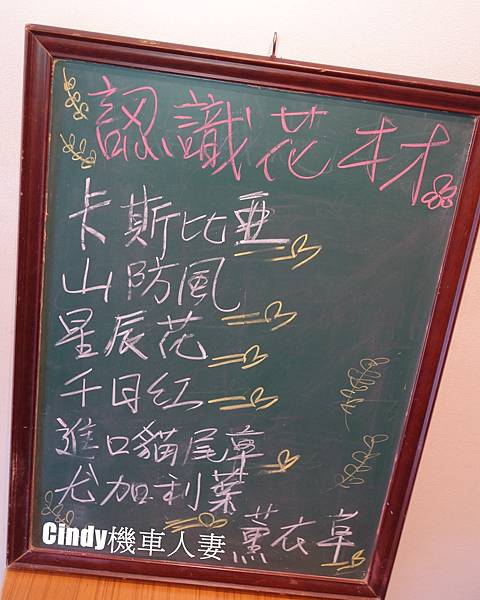 認識花材
卡斯比亜
山防風
星辰花
千日紅
進口貓尾草
尤加利葉
薰衣草
Cindy機車人妻